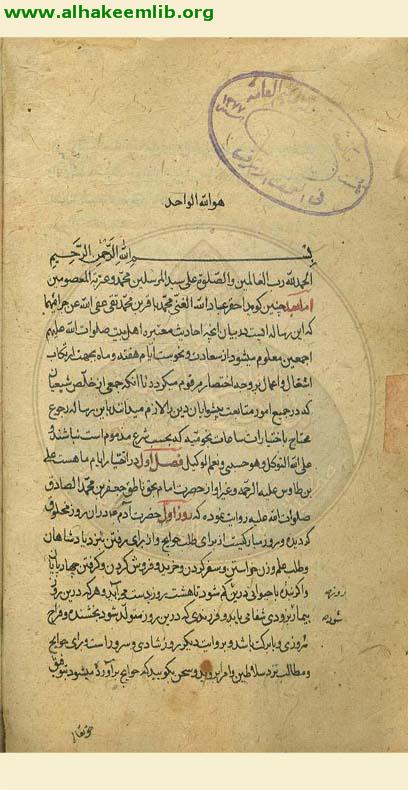 www.alhakeemlib.org
هو الله الواحد
بسم الله الرحمن الرحیم
الحمد لله رب العالمین والصلوة علی سید المرسلین محمد وعترته المعصومین
اما بعد چنین کوید احقر عباد الله الغنی محمد باقر بن محمد تقی عفی الله عن جرائمهما
که این رساله ایست در بیان آنچه از احادیث معتبره اهل بیت صلوات الله علیهم
اجمعین معلوم میشود از سعادت و نحوست ایام هفته و ماه بجهت ارتکاب
اشغال و اعمال بر وجه اختصار مرقوم میکردد تا آنکه جمعی از خلّص شیعیان
که در جمیع امور متابعت پیشوایان دین را لازم میدانند باین رساله رجوع
محتاج باختیارات ساعات نجومیه که بحسب شرع مذموم است نباشند و
علی الله التوکل وهو حسبی ونعم الوکیل فصل اول در اختیار ایام ماهست علی
بن طاوس علیه الرحمه وغیر او از حضرت امام بحق ناطق جعفر بن محمد الصادق
صلوات الله علیه روایت نموده که روز اول حضرت آدم ع در آن روز مخلوق
کردیده و روز مبارکیست از برای طلب حوایج و از برای رفتن بنزد پادشاهان
و طلب علم و زن خواستن و سفر کردن و خرید و فروش کردن و کرفتن چهارپایان
واکر بنده یا حیوانی در این کم شود تا هشت روز بدست می آید و هر که در این روز
بیمار شود بزودی شفا می یابد و فرزندی که در این روز متولد شود بخشنده و فراخ
روزی و با برکت باشد و بروایت دیگر روز شادی و سرور است و برای حوایج
و مطالب نزد سلاطین و امرا بروید و سخن بکویید که حوایج برآورده میشود